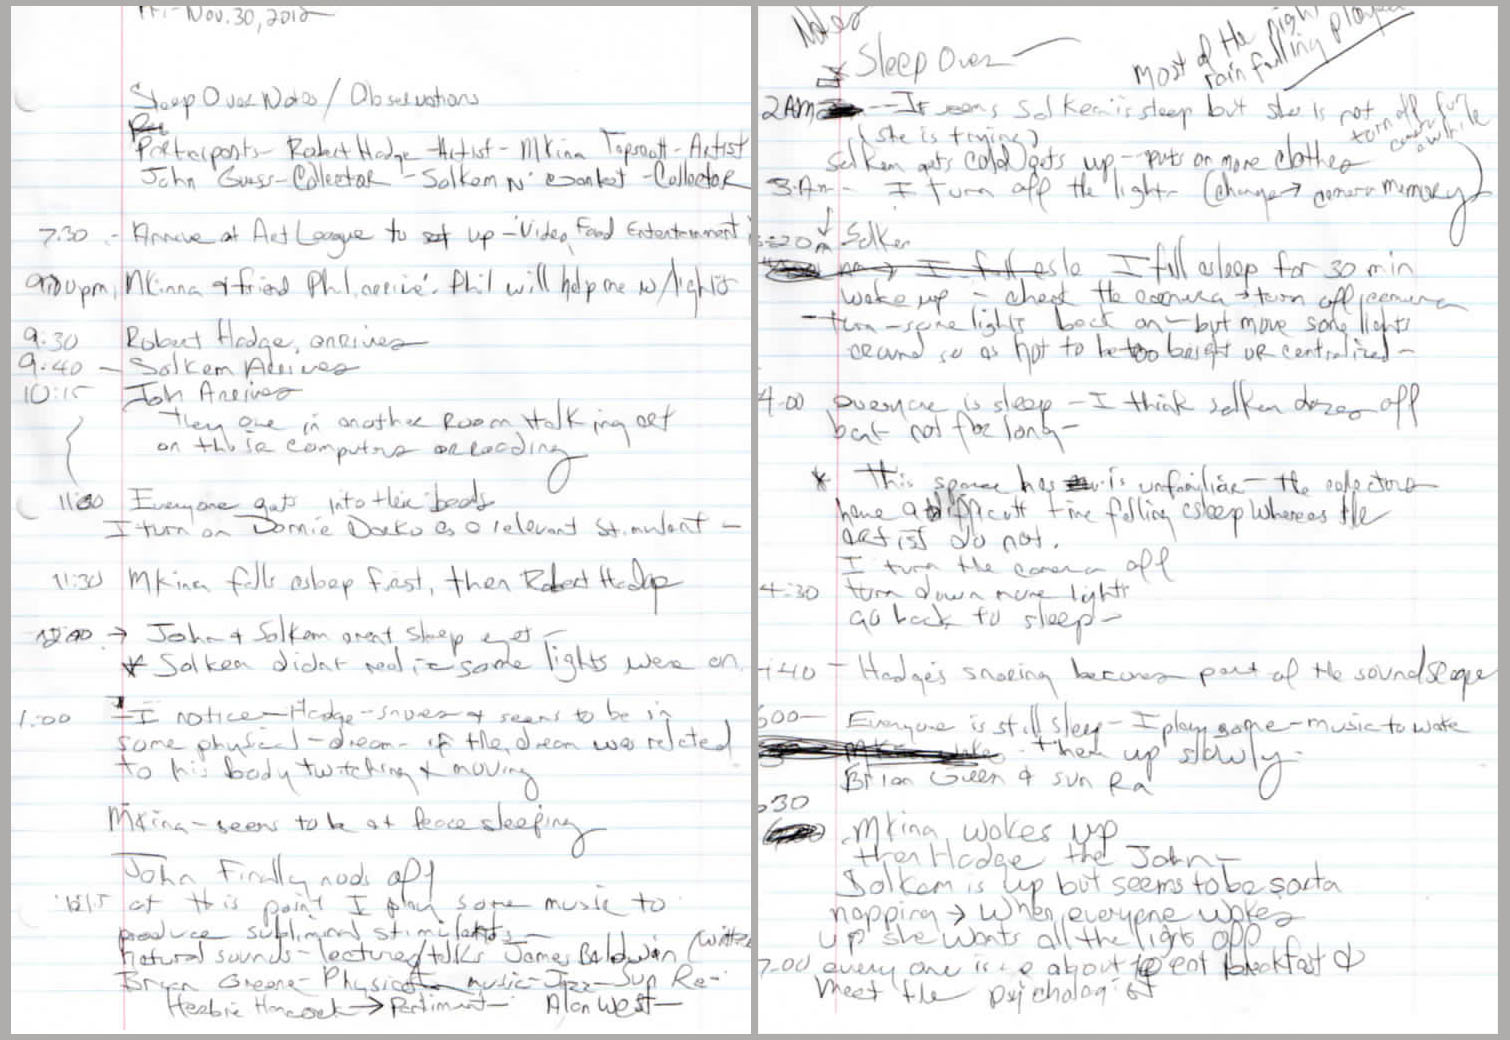 Fri - Nov. 30, 2012
Sleep Over Notes / Observations
Participants - Robert Hodge - Artist - MKina - Artist
John Guess - Collector - Solkem N' - Collector
7:30 - Arrive at Art League to set up - Video, Food Entertainment
9:00pm, MKinna & friend Phil, arrive. Phil will help me w/ lights
9:30 Robert Hodge, arrives
9:40 - Solkem Arrives
10:15 John Arrives
They are in another room talking art
on their computers or reading
11:00 Everyone gets into their beds
I turn on Donnie Darko as a relevant stimulant -
11:30 MKina falls asleep first, then Robert Hodge
12:00 → John & Solkem arent sleep yet -
* Solkem didnt realize some lights were on.
1:00 - I notice - Hodge - snores & seems to be in
some physical - dream - if the dream was related
to his body twitching & moving
MKina - seems to be at peace sleeping
John Finally nods off
at this point I play some music to
produce subliminal stimilants -
natural sounds - lectures/talks James Baldwin (writer
Bryan Greene - Physicist music - Jazz - Sun Ra -
Herbie Hancock → Alan West -
Notes
Sleep Over
Most of the night
rain falling played
2AM - It seems Solkem is sleep but she is not
(she is trying)
turn off
camera for
awhile
Solkem gets cold gets up - puts on more clothes
3 Am - I turn off the light - (change → camera memory)
Solkem
I fall asleep for 30 min
woke up - check the camera → turn off camera
- turn - some lights back on - but move some lights
around so as not to be too bright or centralized -
4:00 everyone is sleep - I think solkem dozes off
but not for long -
* This space is unfamiliar - the collectors
have a difficult time falling asleep whereas the
artist do not.
I turn the camera off
4:30 turn down more lights
go back to sleep -
:40 - Hodge's snoring becomes part of the soundscape
6:00 - Everyone is still sleep - I play some - music to wake
them up slowly -
Brian Green & Sun Ra
:30
MKina wakes up
then Hodge the John -
Solkem is up but seems to be sorta
napping → When everyone wakes
up she wants all the lights off
7:00 every one is about to eat breakfast &
meet the psychologist